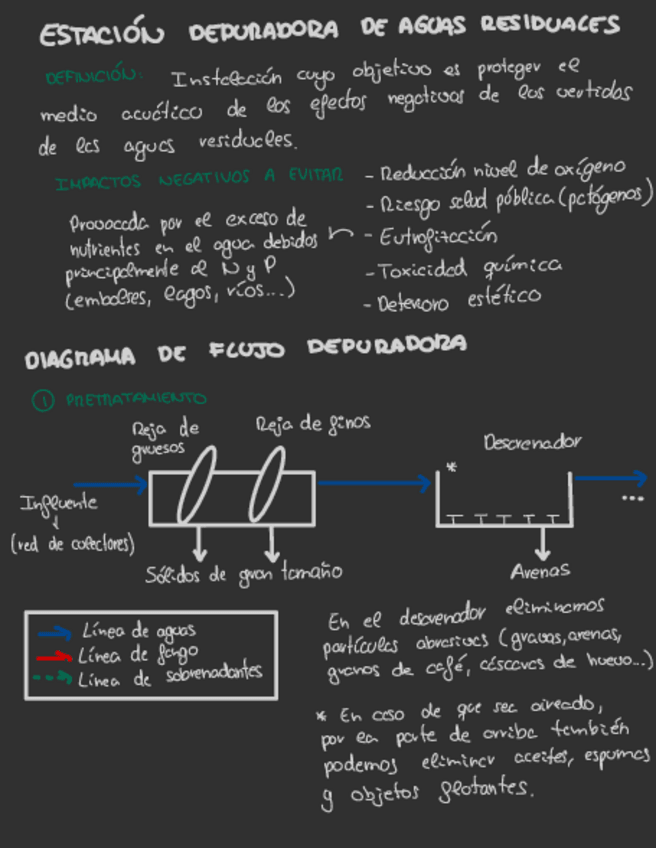 ESTACIÓN DEPURADORA DE AGUAS RESIDUALES
DEFINICIÓN: Instalación cuyo objetivo es proteger el
medio acuático de los efectos negativos de los vertidos
de las aguas residuales.
IMPACTOS NEGATIVOS A EVITAR
- Reducción nivel de oxígeno
- Riesgo salud pública (patógenos)
- Eutrofización
- Toxicidad química
- Deterioro estético
Provocada por el exceso de
nutrientes en el agua debidos
principalmente al N y P
(embalses, lagos, ríos...)
DIAGRAMA DE FLUJO DEPURADORA
① PRETRATAMIENTO
Reja de
gruesos
Reja de finos
Desarenador
*
Influente
(red de colectores)
...
Sólidos de gran tamaño
Arenas
Línea de aguas
Línea de fango
Línea de sobrenadantes
En el desarenador eliminamos
partículas abrasivas (gravas, arenas,
granos de café, cáscaras de huevo...)
* En caso de que sea aireado,
por la parte de arriba también
podemos eliminar aceites, espumas
y objetos flotantes.